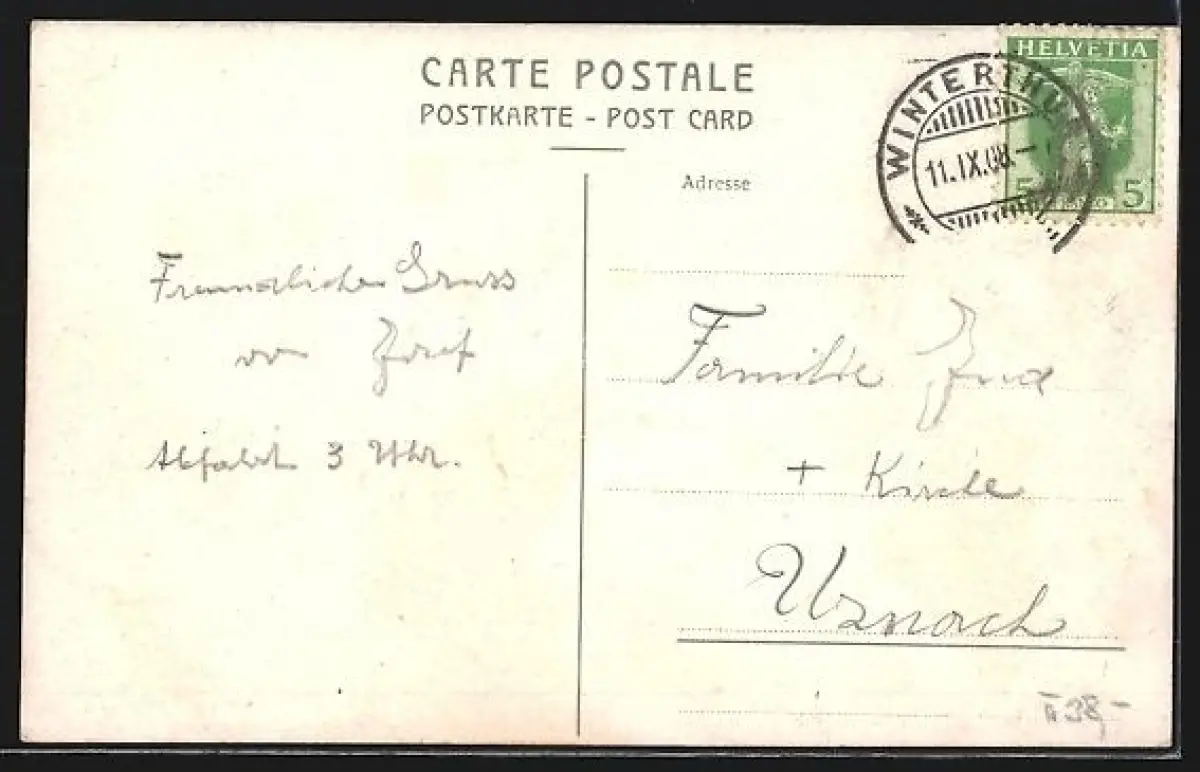 CARTE POSTALE
POSTKARTE - POST CARD
Adresse
HELVETIA
5 5
WINTERTHUR
11.IX.08.-
Freundlichen Gruss
von Josef
Abfahrt 3 Uhr.
Familie Jud
+ Kirche
Uznach
38,-